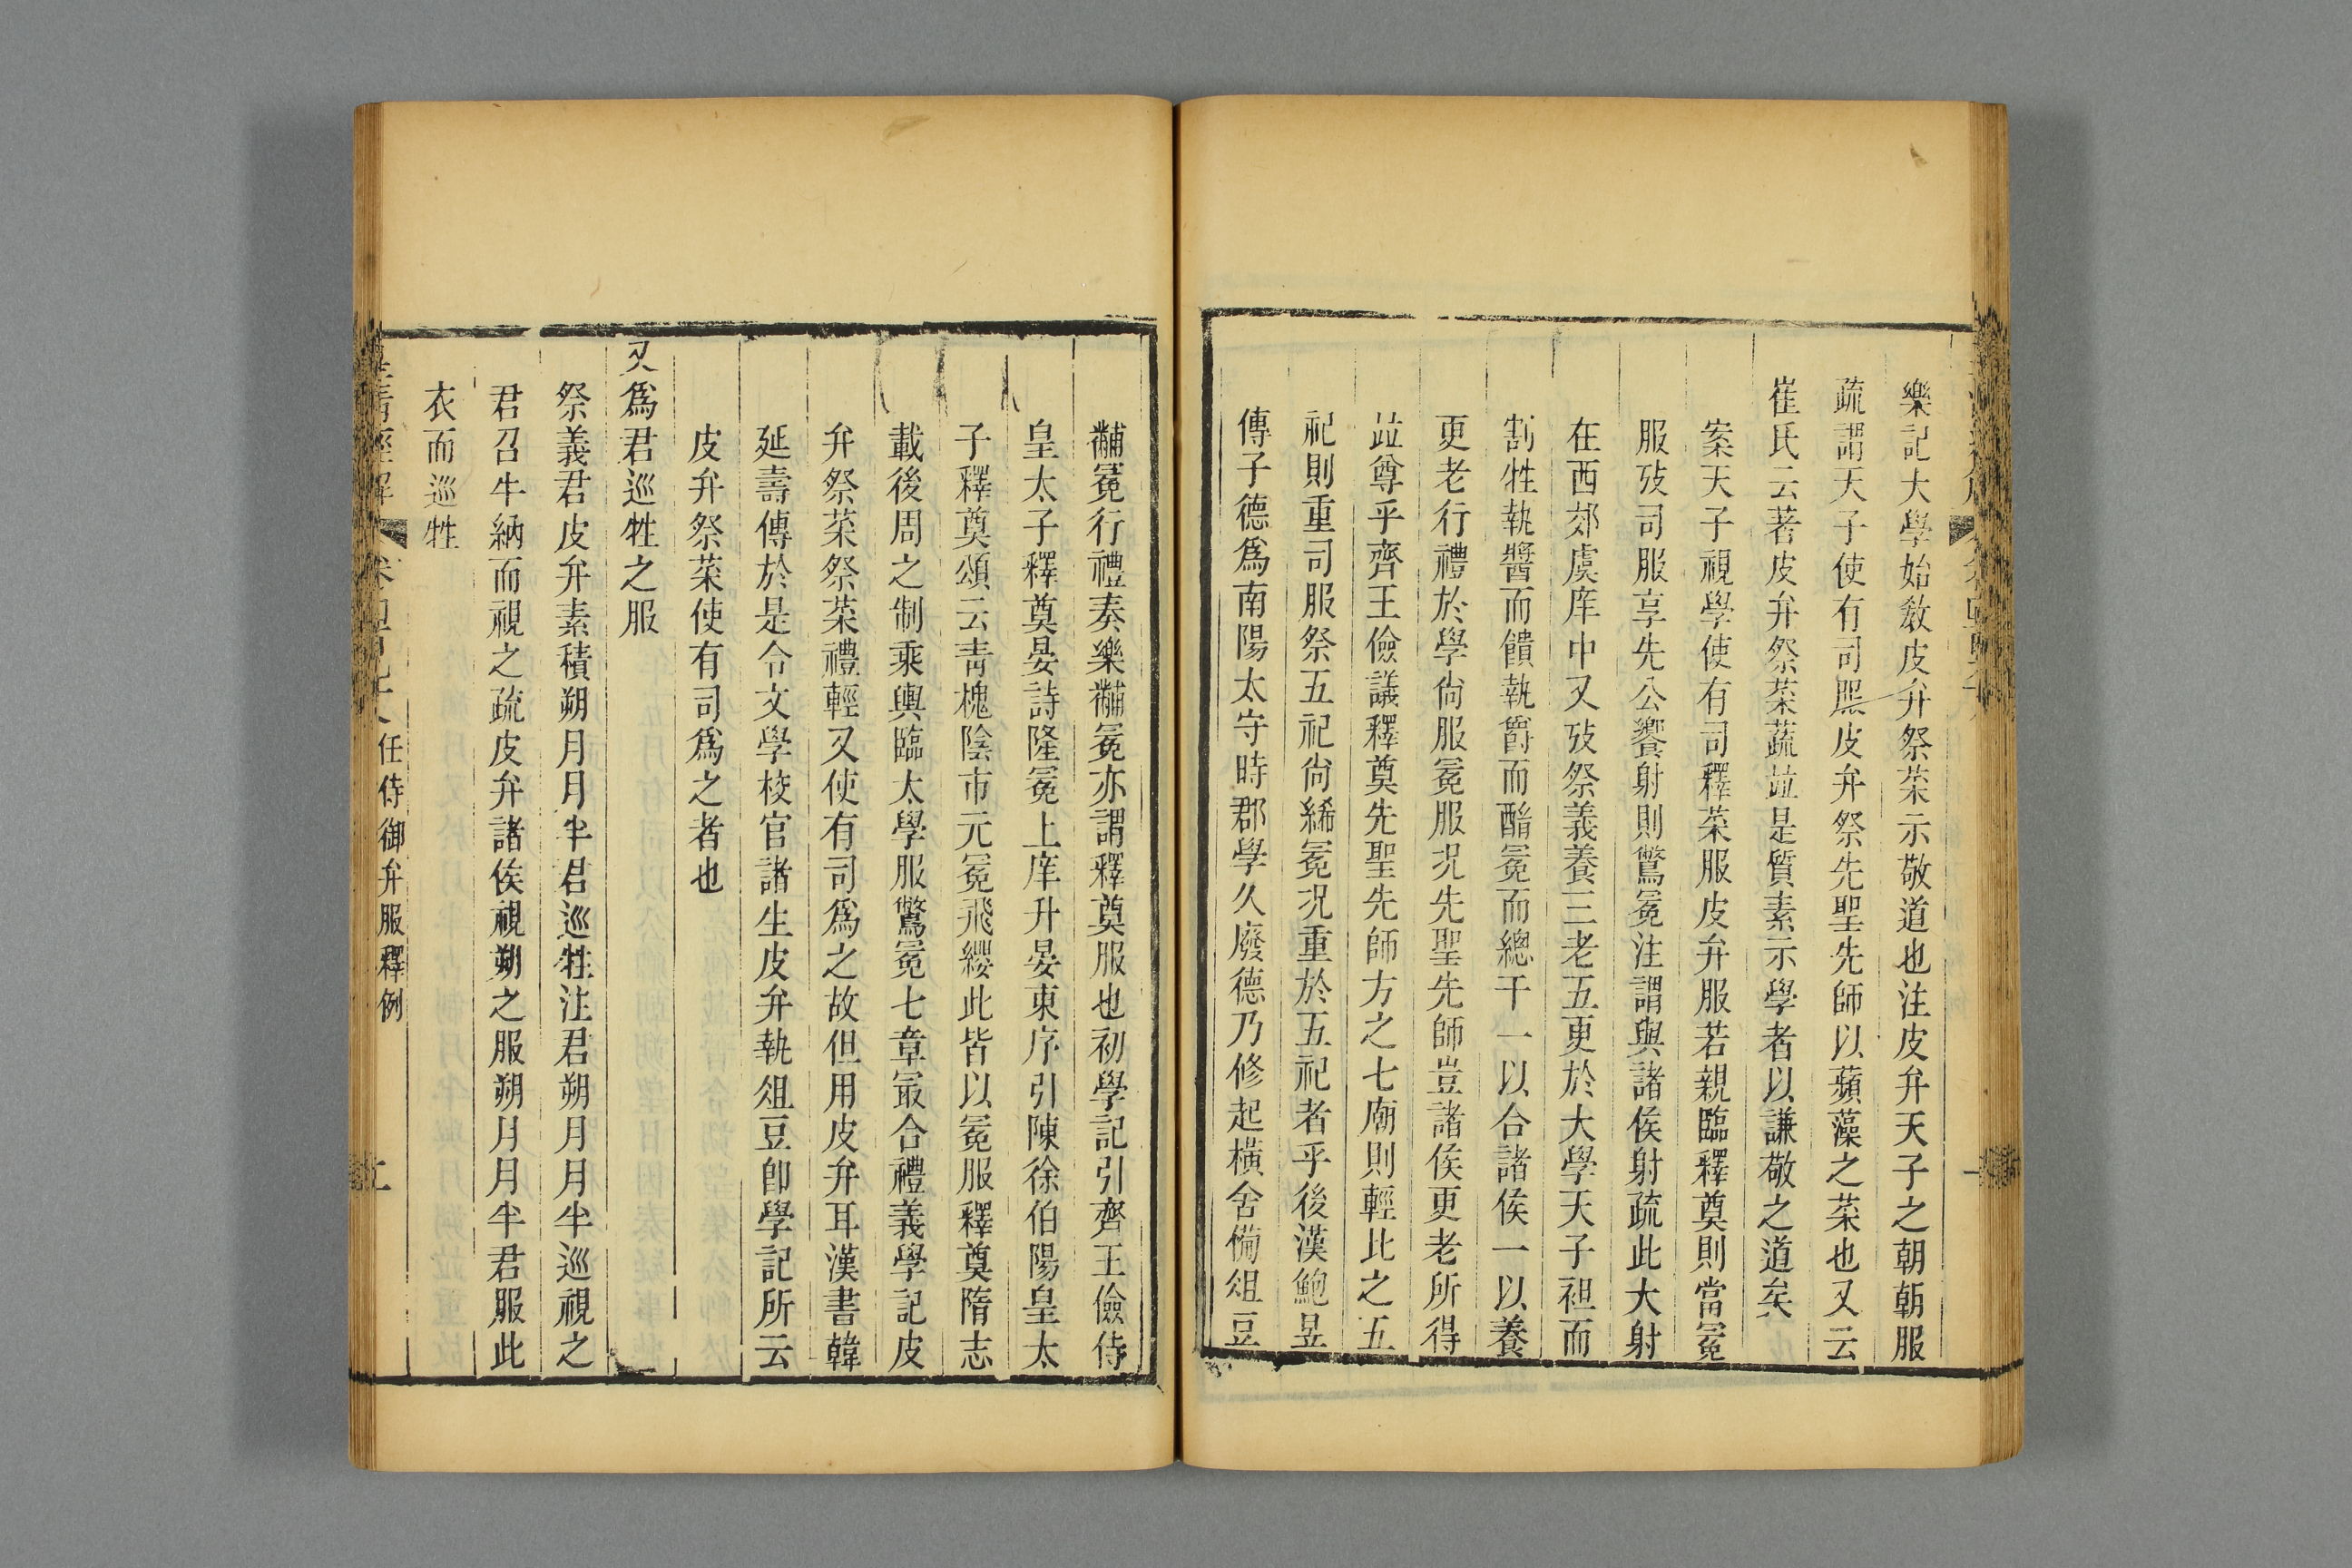 樂記大學始敎皮弁祭菜示敬道也注皮弁天子之朝朝服
疏謂天子使有司服皮弁祭先聖先師以蘋藻之菜也又云
崔氏云著皮弁祭菜蔬竝是質素示學者以謙敬之道矣
案天子視學使有司釋菜服皮弁服若親臨釋奠則當冕
服攷司服享先公饗射則鷩冕注謂與諸侯射疏此大射
在西郊虞庠中又攷祭義養三老五更於大學天子袒而
割牲執醬而饋執爵而酳冕而總干一以合諸侯一以養
更老行禮於學尙服冕服況先聖先師豈諸侯更老所得
竝尊乎齊王儉議釋奠先聖先師方之七廟則輕比之五
祀則重司服祭五祀尙絺冕況重於五祀者乎後漢鮑昱
傳子德爲南陽太守時郡學久廢德乃修起橫舍備俎豆
黼冕行禮奏樂黼冕亦謂釋奠服也初學記引齊王儉侍
皇太子釋奠宴詩隆冕上庠升宴東序引陳徐伯陽皇太
子釋奠頌云靑槐陰市元冕飛纓此皆以冕服釋奠隋志
載後周之制乘輿臨太學服鷩冕七章㝡合禮義學記皮
弁祭菜祭菜禮輕又使有司爲之故但用皮弁耳漢書韓
延壽傳於是令文學校官諸生皮弁執俎豆卽學記所云
皮弁祭菜使有司爲之者也
又爲君巡牲之服
祭義君皮弁素積朔月月半君巡牲注君朔月月半巡視之
君召牛納而視之疏皮弁諸侯視朔之服朔月月半君服此
衣而巡牲
皇淸經解 任侍御弁服釋例